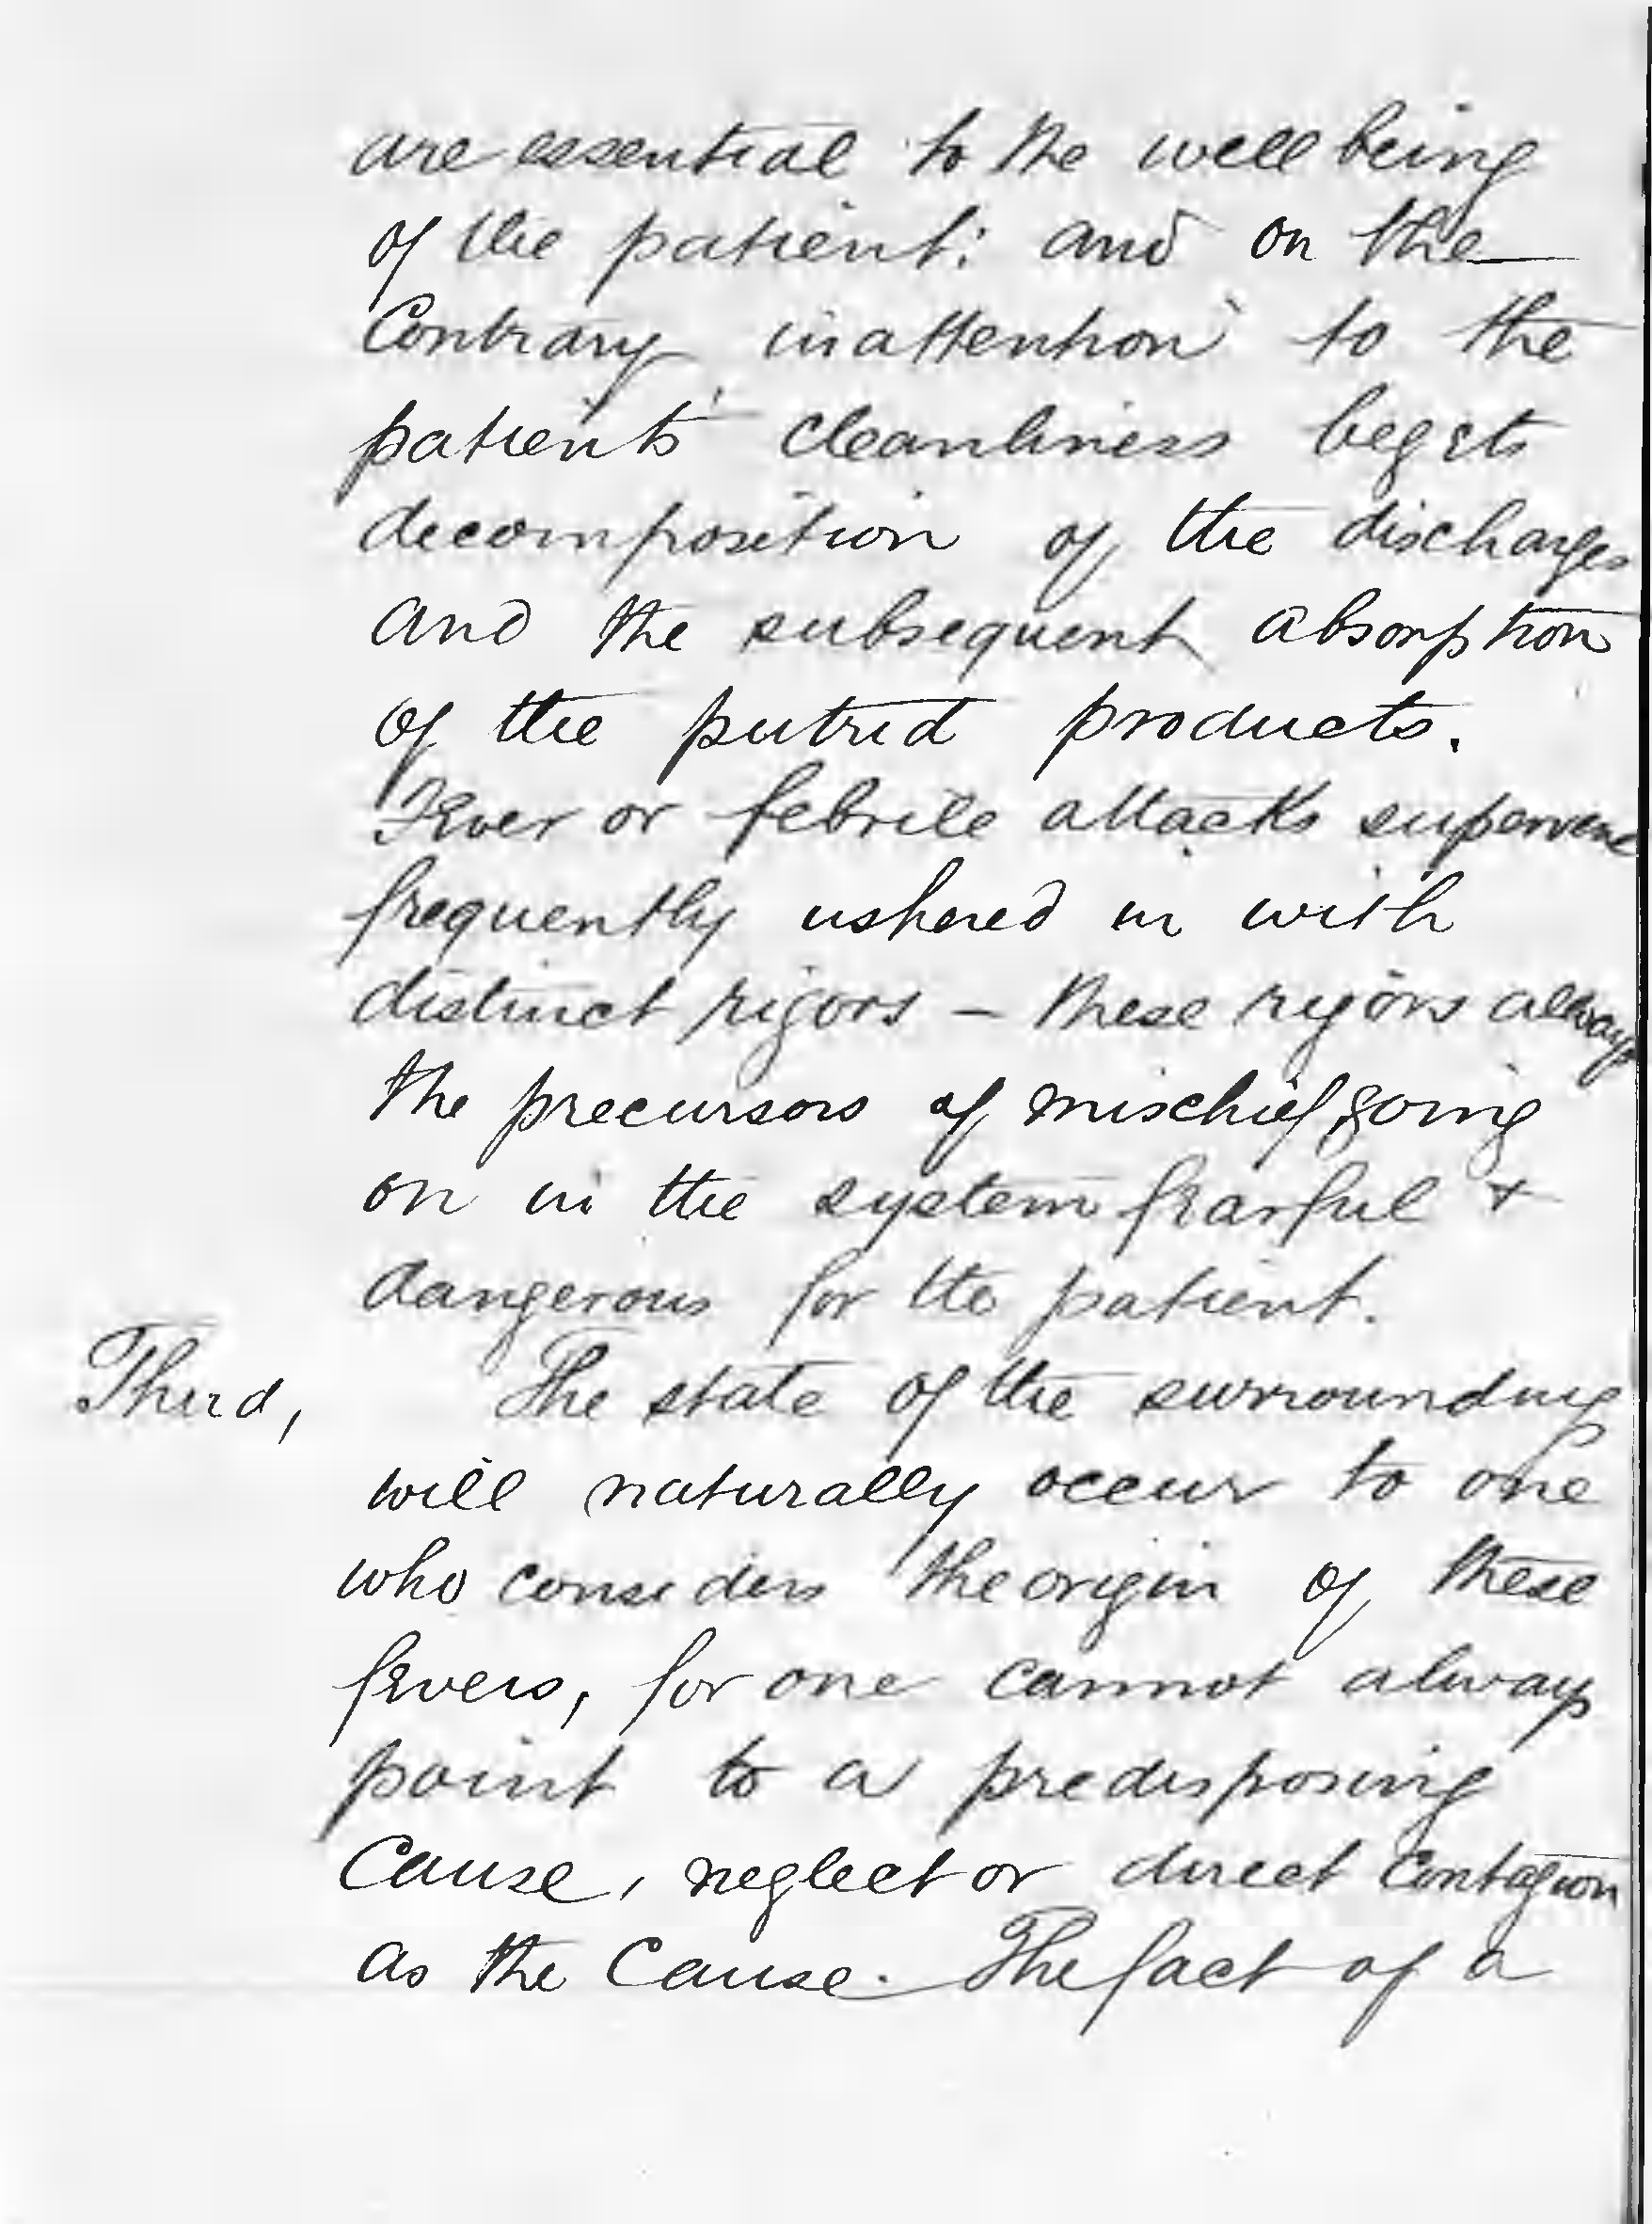 are essential to the well being
of the patient: and on the
Contrary inattention to the
patient's cleanliness begets
decomposition of the discharges
and the subsequent absorption
of the putrid products.
Fever or febrile attacks supervene
frequently ushered in with
distinct rigors - these rigors always
the precursors of mischief going
on in the system fearful +
dangerous for the patient.
Third, The state of the surrounding
will naturally occur to one
who considers the origin of these
fevers, for one cannot always
point to a predisposing
Cause, neglect or direct Contagion
as the Cause. The fact of a